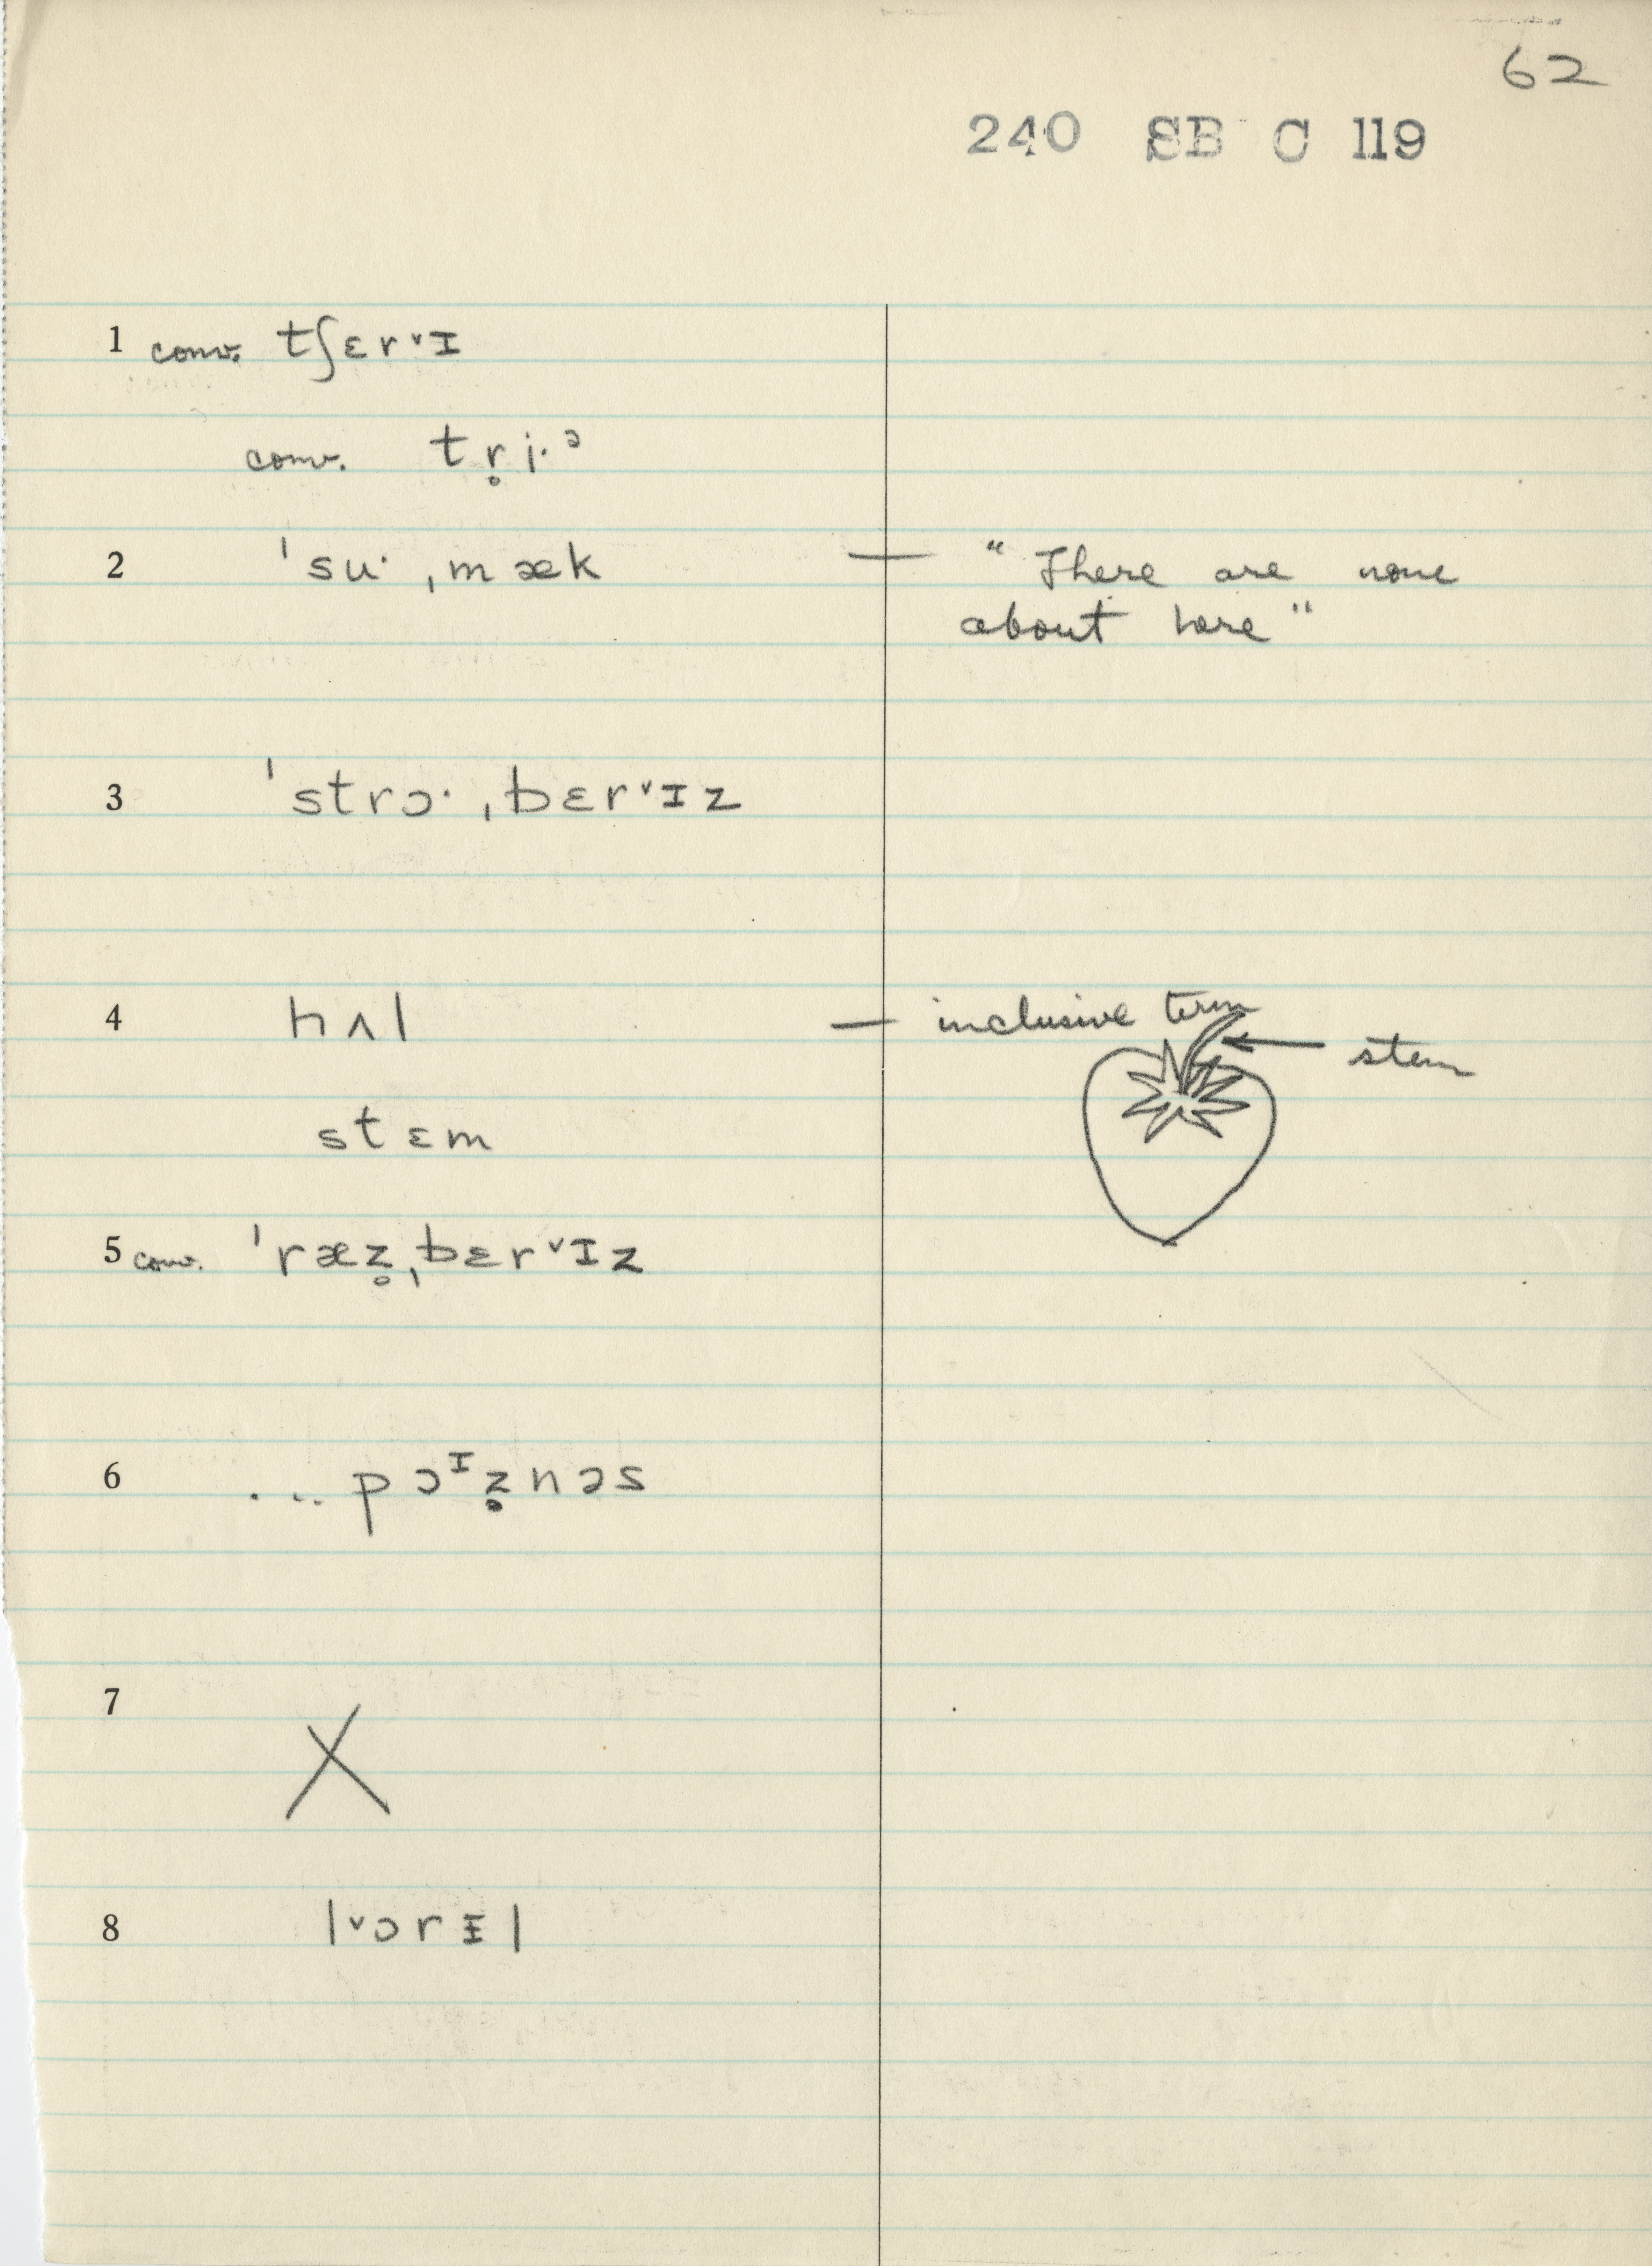 62
240 SB C 119
1 conv. tʃɛr ˅ɪ
conv. tr̥i·ᵊ
2 ˈsu· ˌmæk — "There are none
about here"
3 ˈstrɔ· ˌbɛr˅ɪz
4 hʌl — inclusive term
stem
stɛm
5 conv. ˈræz̥ˌbɛr˅ɪz
6 ... pɔᶦz̥nəs
7 X
8 l˅ɔrᵻl